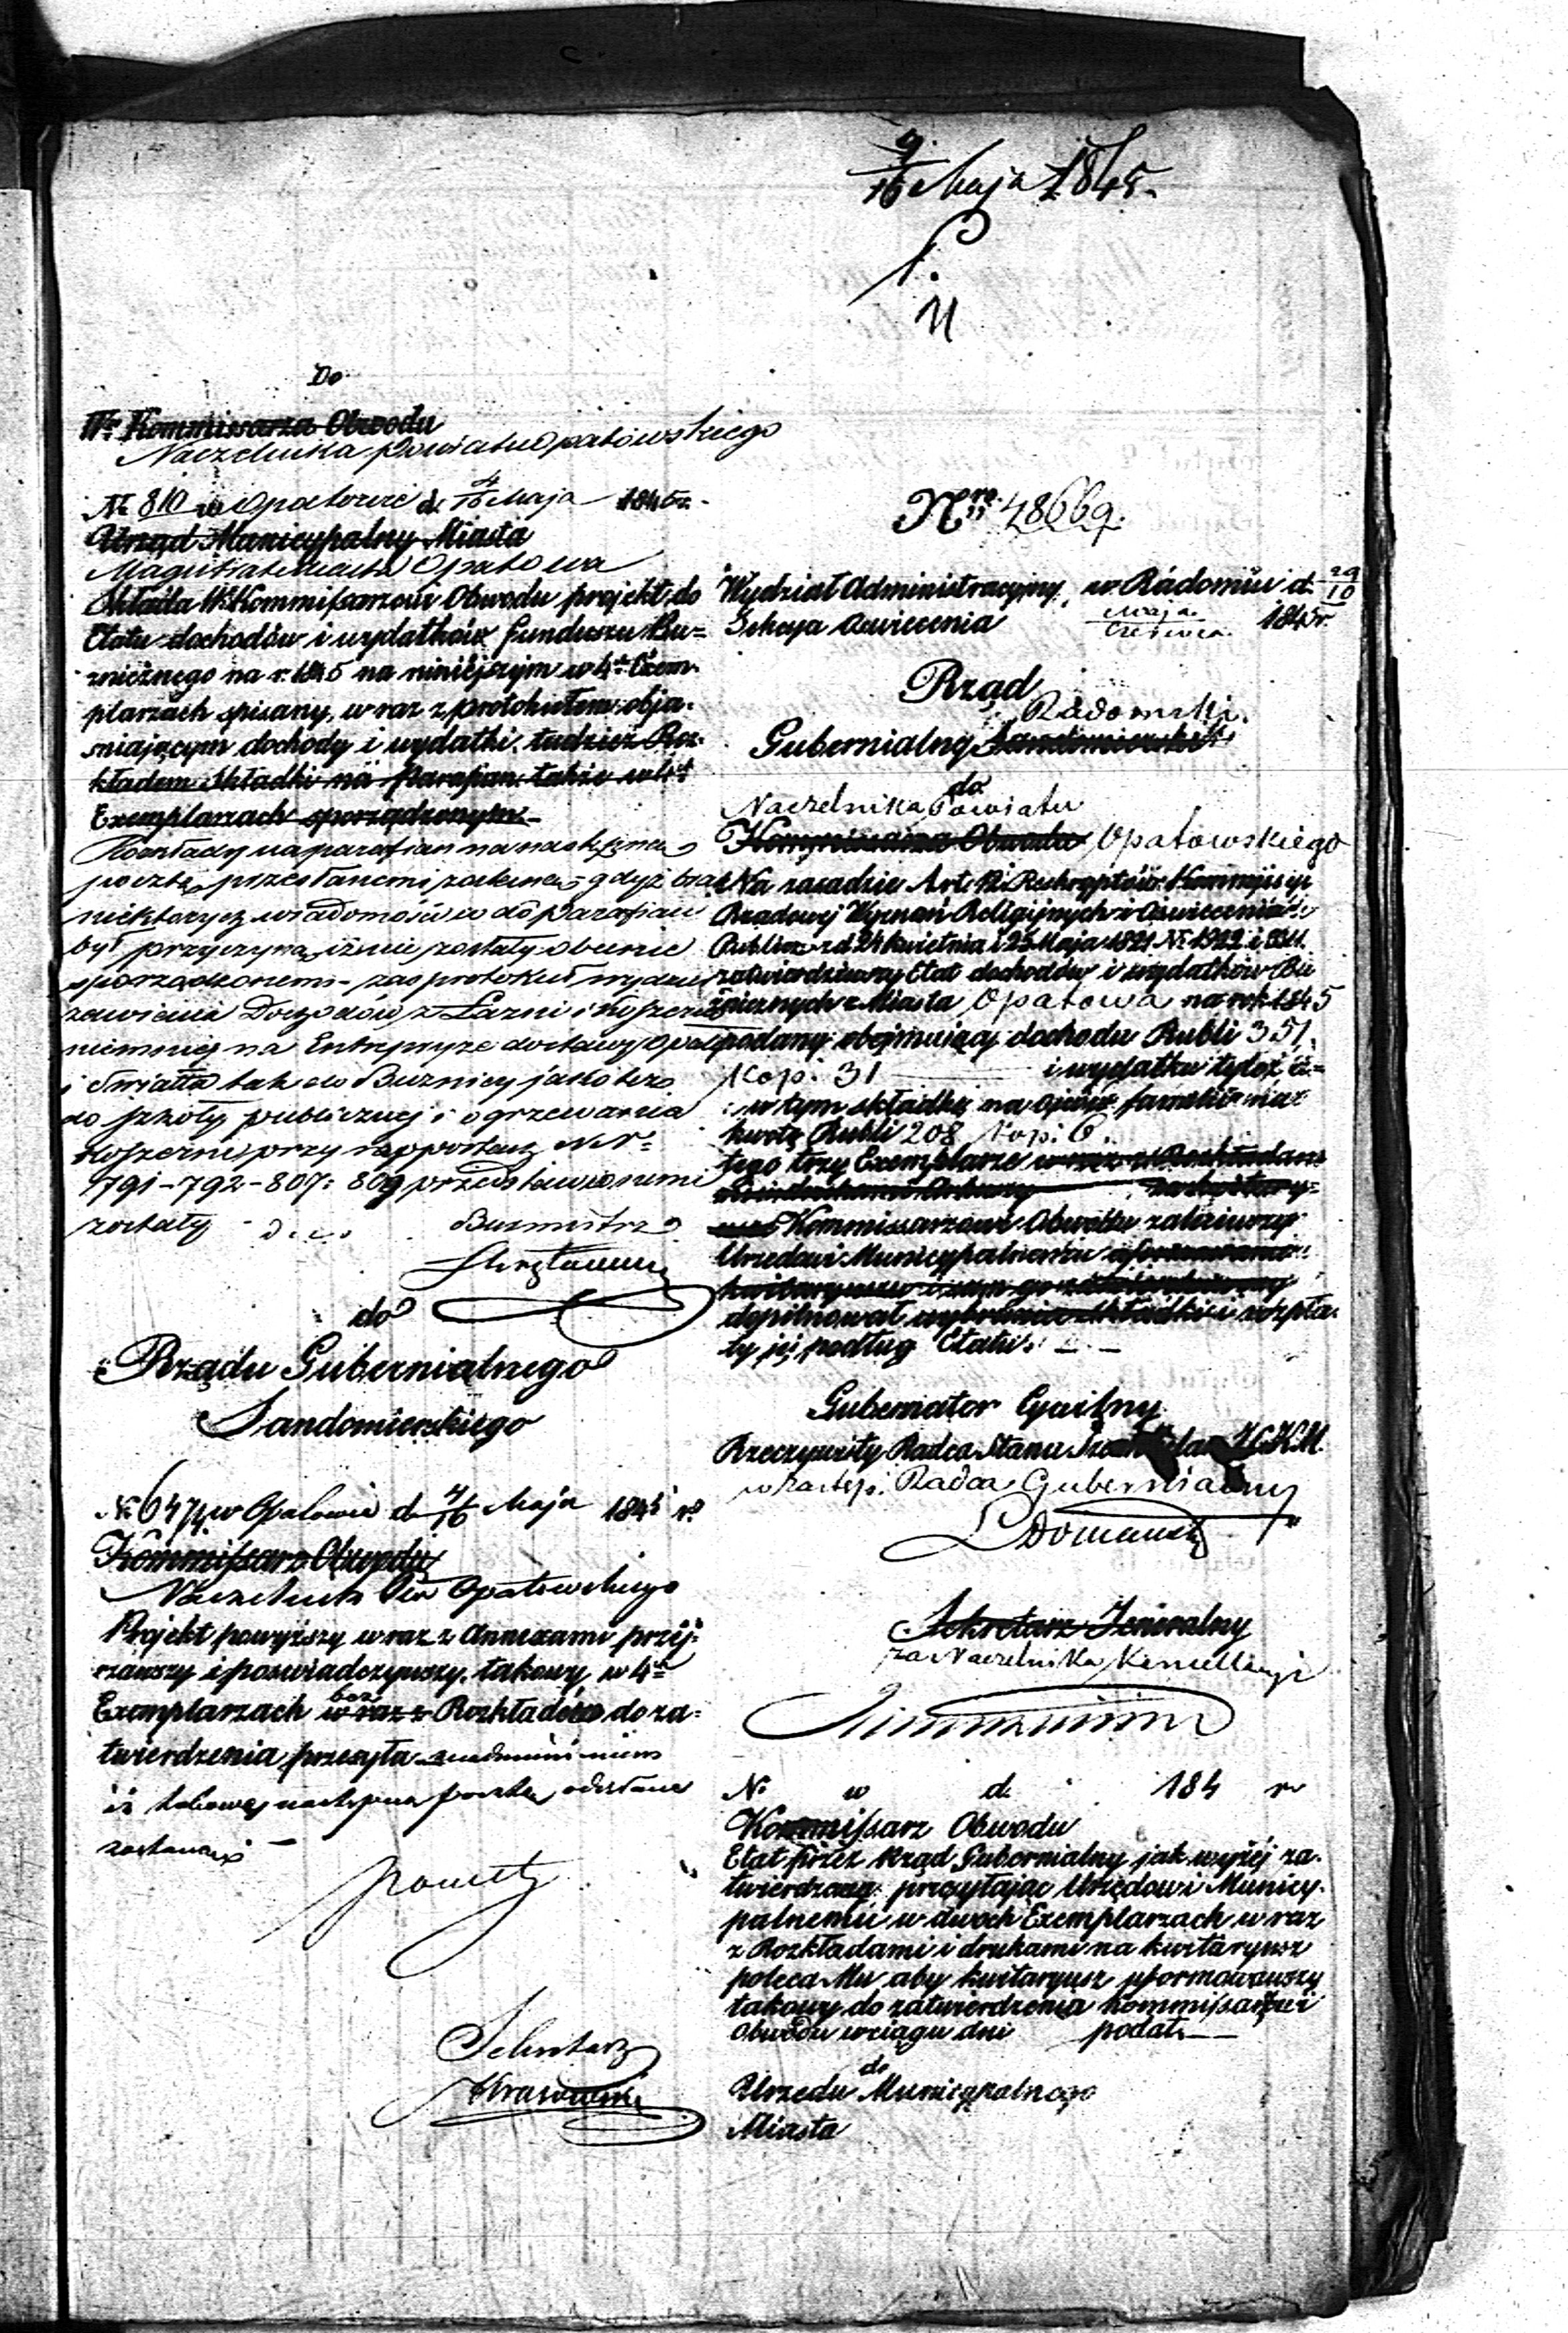 9/16 Maja 1845.
Do
W. Kommissarza Obwodu
Naczelnika Powiatu Opatowskiego
No 810 w Opatowie d. 4/16 Maja 1845 r.
Urząd Municypalny Miasta
Magistrat Miasta Opatowa
Składa W. Kommissarzowi Obwodu projekt do
Etatu dochodów i wydatków funduszu Bu=
źnicznego na r. 1845 na niniejszym w 4ch Exem-
plarzach spisany, wraz z protokułem obja-
śniającym dochody i wydatki, tudzież Roz-
kładem Składki na Parafian także w 4ch
Exemplarzach sporządzonym.
Rozkłady na parafian na następną
pocztę przesłanemi zostaną gdyż brak
niektórych wiadomości co do parafian
był przyczyną iż nie zostały obecnie
sporządzonemi - zaś protokuł wydzier
żawienia Dochodów z Łazni i Koszerni
niemniej na Entrepryzę dostawy opału
i Światła tak do Buznicy jako też
do szkoły publicznej i ogrzewania
Koszerni przy rapportach NNr=
791-792-807: 809 przedstawionemi
zostały
Burmistrz
do
Rządu Gubernialnego
Sandomierskiego
No 6474 w Opatowie d. 4/16 Maja 1845 r.
Kommissarz Obwodu
Naczelnik Ptu Opatowskiego
Projekt powyższy wraz z Annexami przej-
rzawszy i poswiadczywszy, takowy w 4ch
Exemplarzach wraz z bez Rozkładów do za-
twierdzenia przesyła z nadmienieniem
iż takowe następną pocztą odesłane
zostaną
Sekretarz
Nro 48669.
Wydział Administracyjny, w Radomiu d. 29/10
Sekcya Oświecenia Maja/Czerwca 1845 r.
Rząd
Radomski
Gubernialny Sandomierski
do
Naczelnika Powiatu
Kommissarza Obwodu Opatowskiego
Na zasadzie Art. 12 Reskryptów Kommissyi
Rządowej Wyznań Religijnych i Oświecenia
Publicz. z d. 24 Kwietnia i 25 Maja 1821 No 1922 i
zatwierdziwszy Etat dochodów i wydatków Bu
źnicznych Miasta Opatowa na rok 1845
podany obejmujący dochodu Rubli 351.
Kop. 31 i wydatku tyleż a
w tym składkę na ogół familii na
kwotę Rubli 208 Kop. 6.
tego trzy Exemplarze wraz z Rozkładami
Kommissarzowi Obwodu zaleciwszy
Urzędowi Municypalnemu
dopilnował wybrania składki i wypła-
ty jej podług Etatu.
Gubernator Cywilny
Rzeczywisty Radca Stanu
w zastęp. Radca Gubernialny
Sekretarz Jeneralny
za Naczelnika Kancellaryi
No w d. 184 r.
Kommissarz Obwodu
Etat przez Rząd Gubernialny jak wyżej za-
twierdzony przesyłając Urzędowi Municy-
palnemu w dwoch Exemplarzach wraz
z Rozkładami i drukami na kwitaryusz
poleca Mu aby kwitaryusz uformowawszy
takowy do zatwierdzenia Kommissarzowi
Obwodu w ciągu dni podał.
do
Urzędu Municypalnego
Miasta